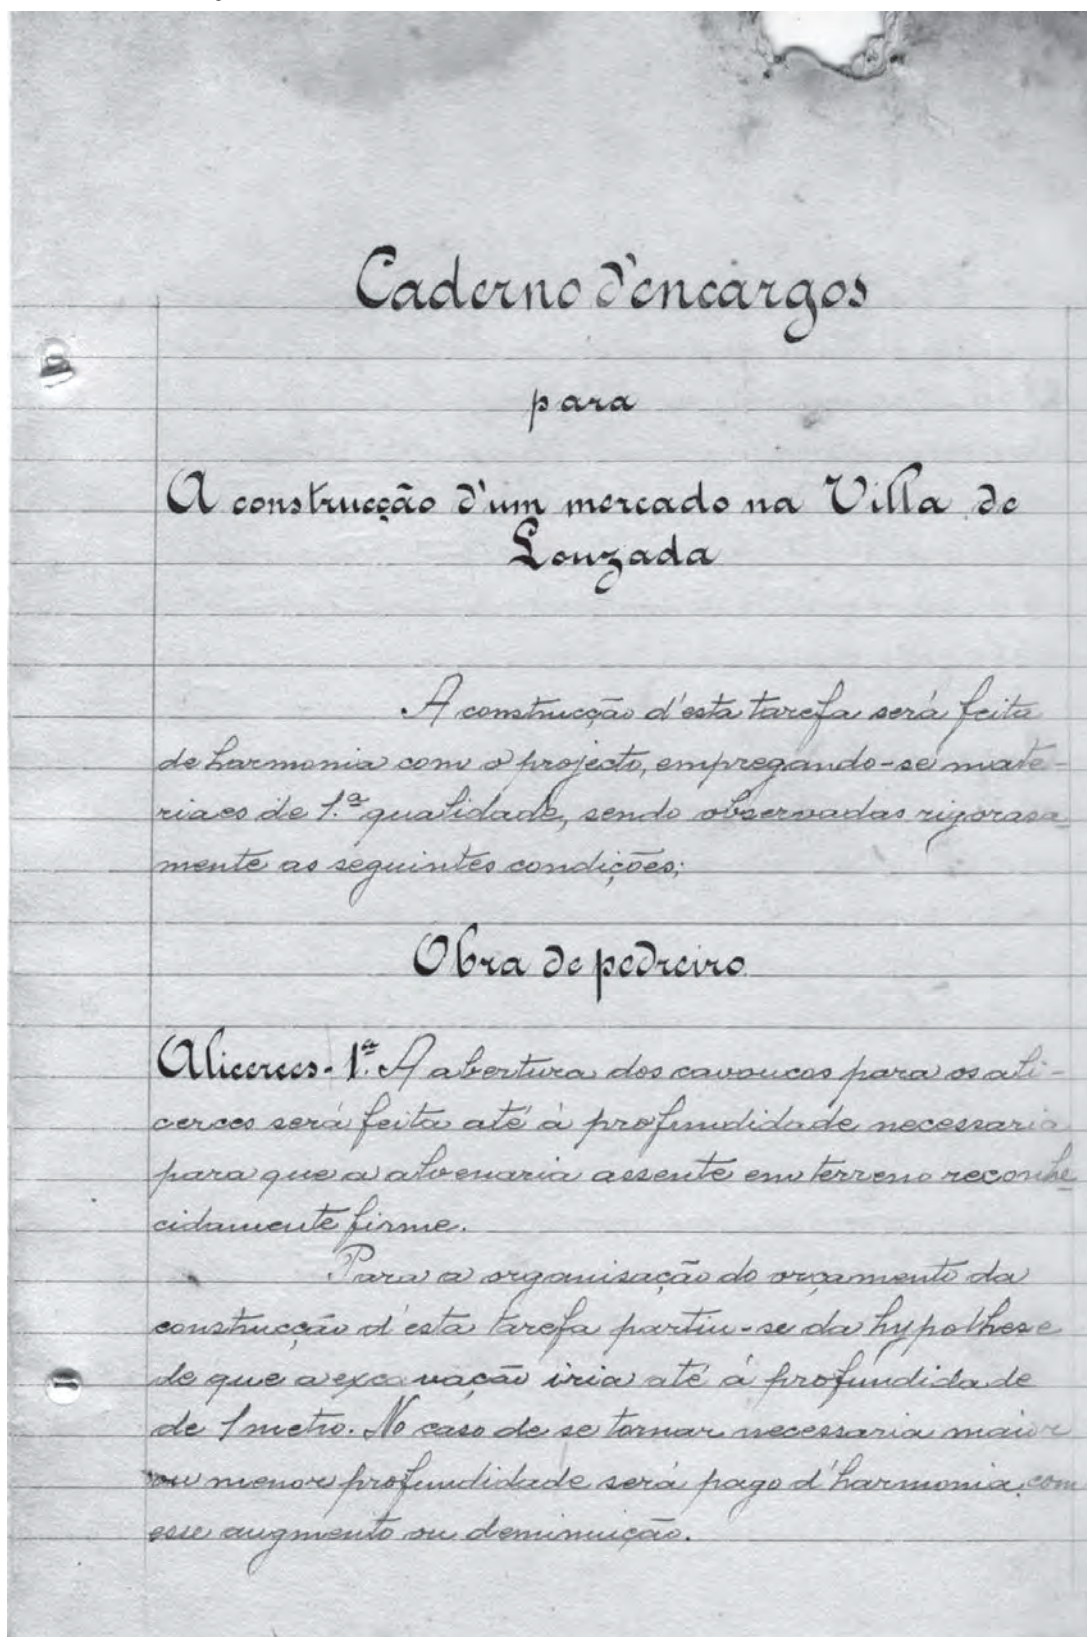 Caderno d'encargos
para
A construcção d'um mercado na Villa de
Louzada
A construcção d'esta tarefa será feita
de harmonia com o projecto, empregando-se mate-
riaes de 1.ª qualidade, sendo observadas rigorosa-
mente as seguintes condições;
Obra de pedreiro
Alicerces - 1.ª A abertura dos cavoucos para os ali-
cerces será feita até á profundidade necessaria
para que a alvenaria assente em terreno reconhe-
cidamente firme.
Para a organisação do orçamento da
construcção d'esta tarefa partiu-se da hypothese
de que a excavação iria até á profundidade
de 1 metro. No caso de se tornar necessaria maior
ou menor profundidade será pago d'harmonia com
esse augmento ou deminuição.